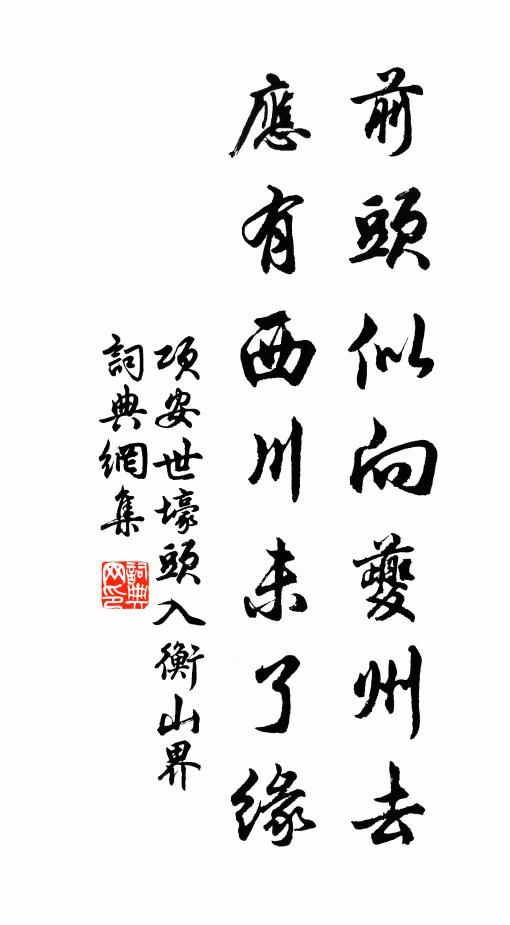 前頭似向夔州去
應有西川未了緣
項安世壕頭入衡山界
詞典網集
詞典网印